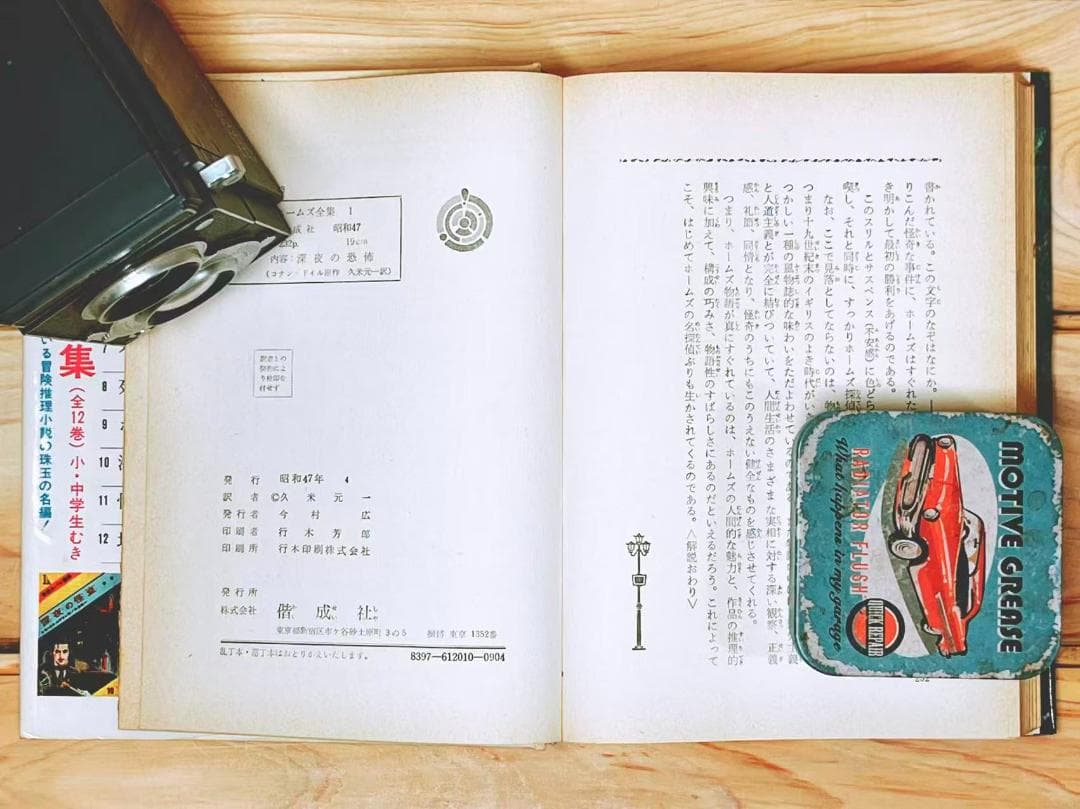 書かれている。この文字のなぞはなにか。
りこんだ怪奇な事件に、ホームズはすぐれた
き明かして最初の勝利をあげるのである。
このスリルとサスペンス(不安感)に色どら
喫し、それと同時に、すっかりホームズ探偵
なお、ここで見落としてならないのは、物
つまり十九世紀末のイギリスのよき時代がい
つかしい一種の風物誌的な味わいをただよわせているの
と人道主義とが完全に結びついていて、人間生活のさまざまな実相に対する深い観察、正義
感、礼節、同情となり、怪奇のうちにもこのうえない健全なものを感じさせてくれる。
つまり、ホームズ物語が真にすぐれているのは、ホームズの人間的な魅力と、作品の推理的
興味に加えて、構成の巧みさ、物語性のすばらしさにあるのだといえるだろう。これによって
こそ、はじめてホームズの名探偵ぶりも生かされてくるのである。〈解説おわり〉
MOTIVE GREASE
RADIATOR FLUSH
What happens in my garage
QUICK REPAIR
ームズ全集 1
成社 昭和47
232p. 19cm
内容:深夜の恐怖
(コナン・ドイル原作 久米元一訳)
訳者との
契約によ
り検印を
付せず
発行 昭和47年 4
訳者 ©久米元一
発行者 今村広
印刷者 行木芳郎
印刷所 行木印刷株式会社
発行所
株式会社 偕成社
東京都新宿区市ケ谷砂土原町3の5 振替 東京 1352番
乱丁本・落丁本はおとりかえいたします。
8397-612010-0904
集
(全12巻)小・中学生むき
いる冒険推理小説の珠玉の名編!
7
8
9
10
11
12
深夜の怪盗